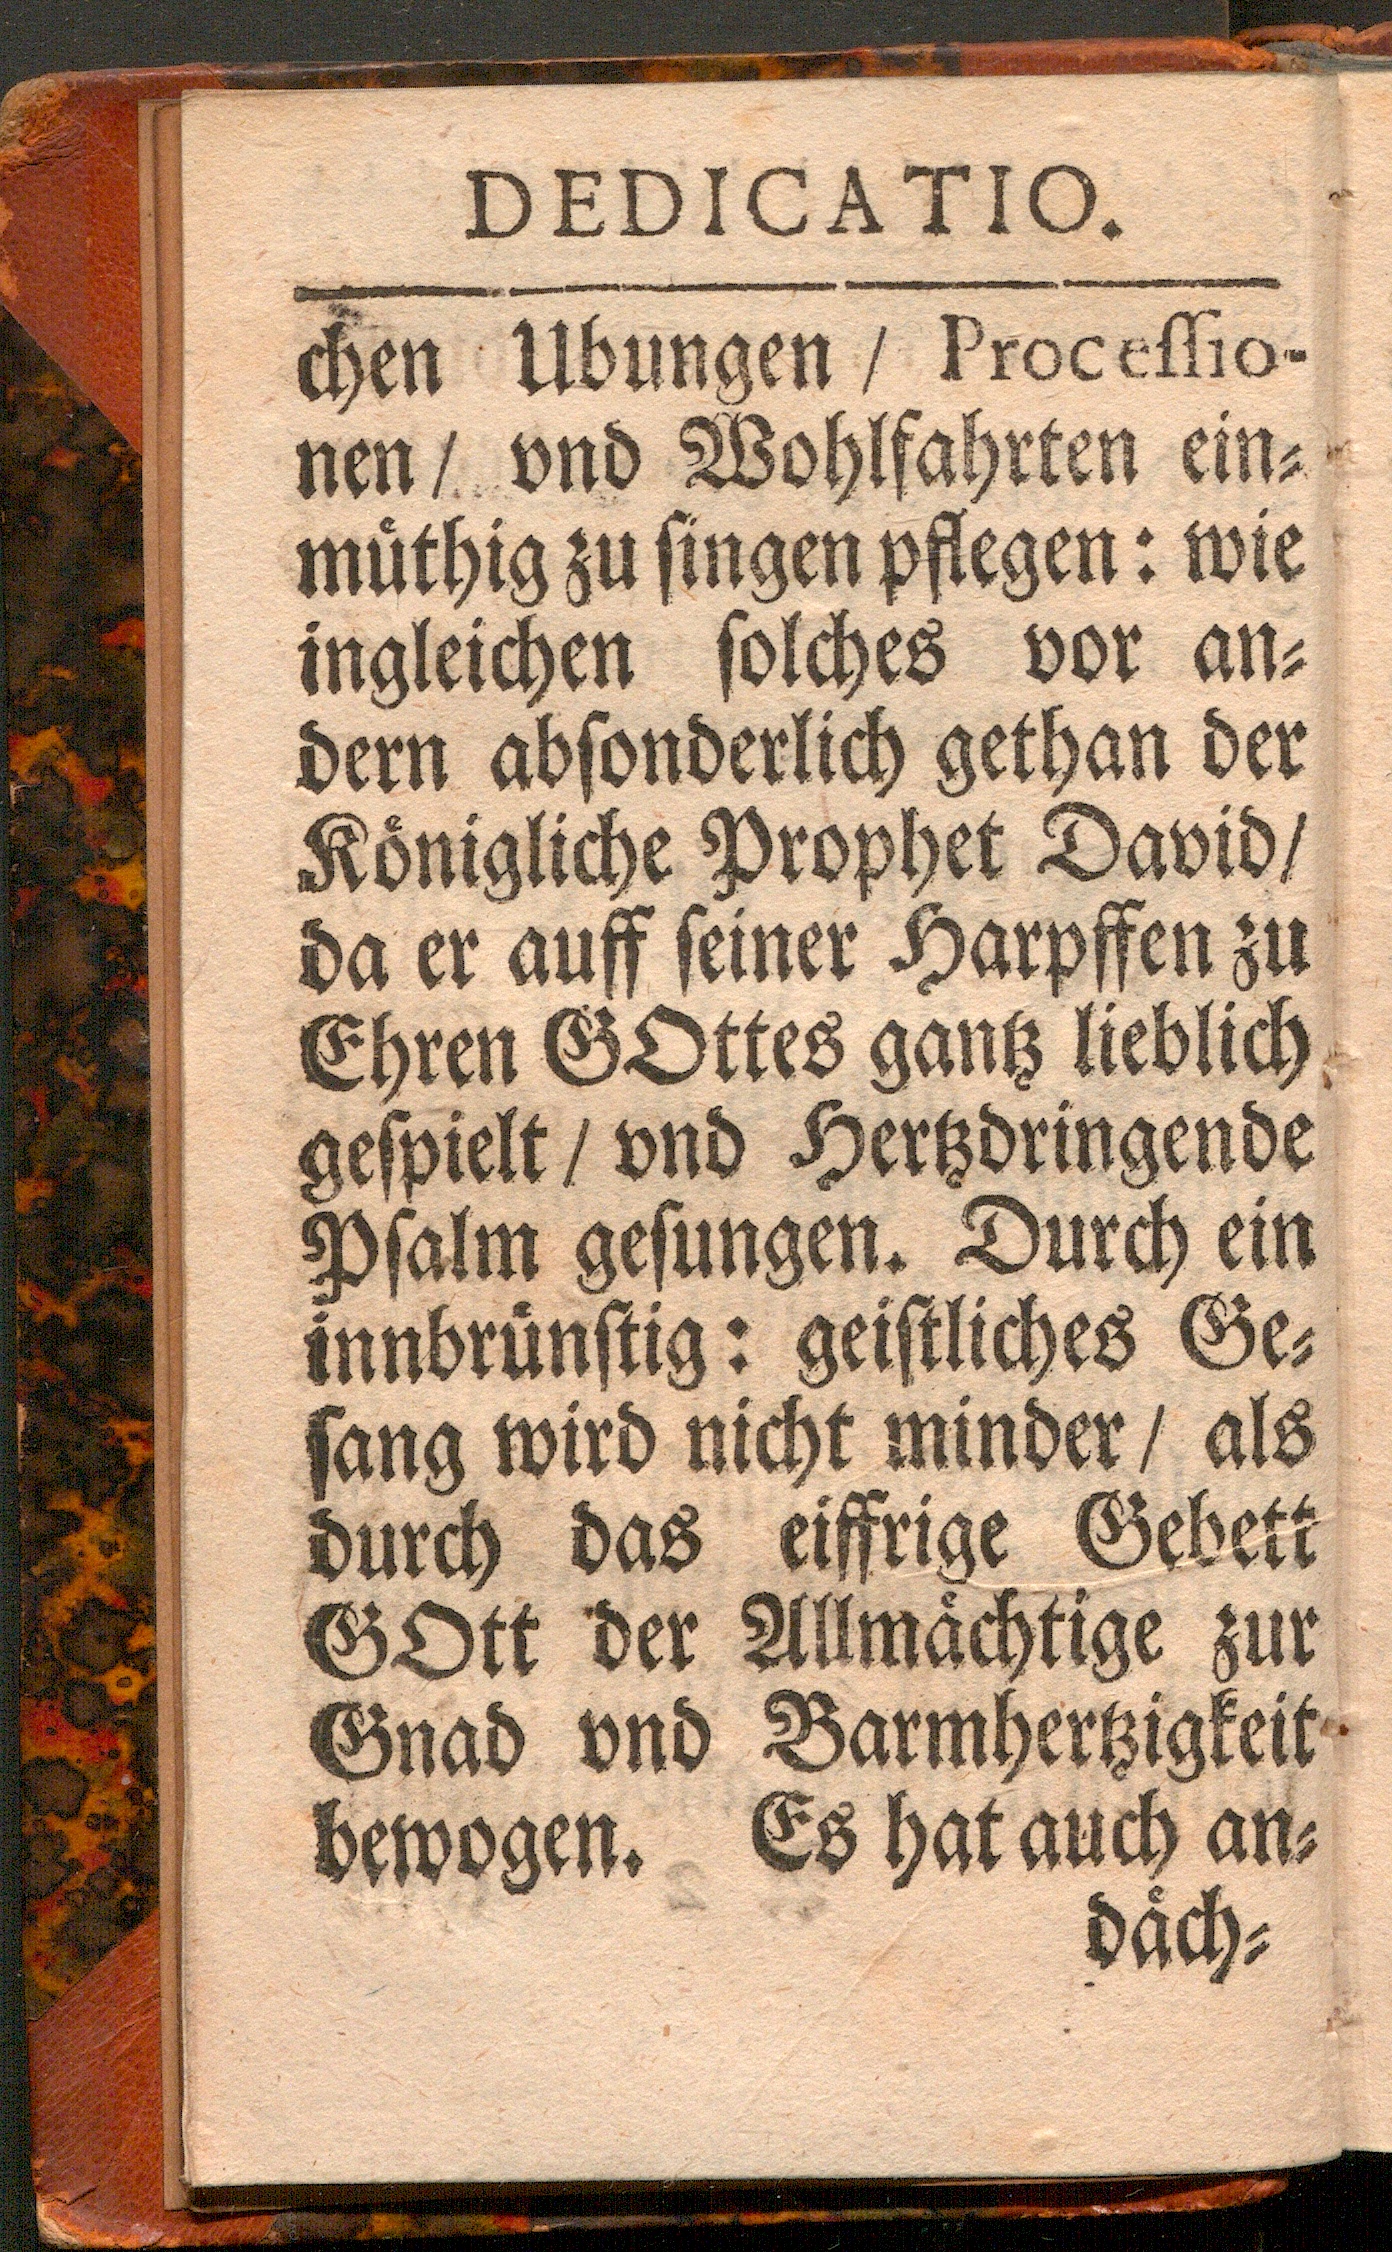 DEDICATIO.
chen Ubungen / Proceſſio-
nen / vnd Wohlfahrten ein⸗
muͤthig zu ſingen pflegen: wie
ingleichen ſolches vor an⸗
dern abſonderlich gethan der
Koͤnigliche Prophet David /
da er auff ſeiner Harpffen zu
Ehren GOttes gantz lieblich
geſpielt / vnd Hertzdringende
Pſalm geſungen. Durch ein
innbruͤnſtig: geiſtliches Ge⸗
ſang wird nicht minder / als
durch das eiffrige Gebett
GOtt der Allmaͤchtige zur
Gnad vnd Barmhertzigkeit
bewogen. Es hat auch an⸗
daͤch⸗